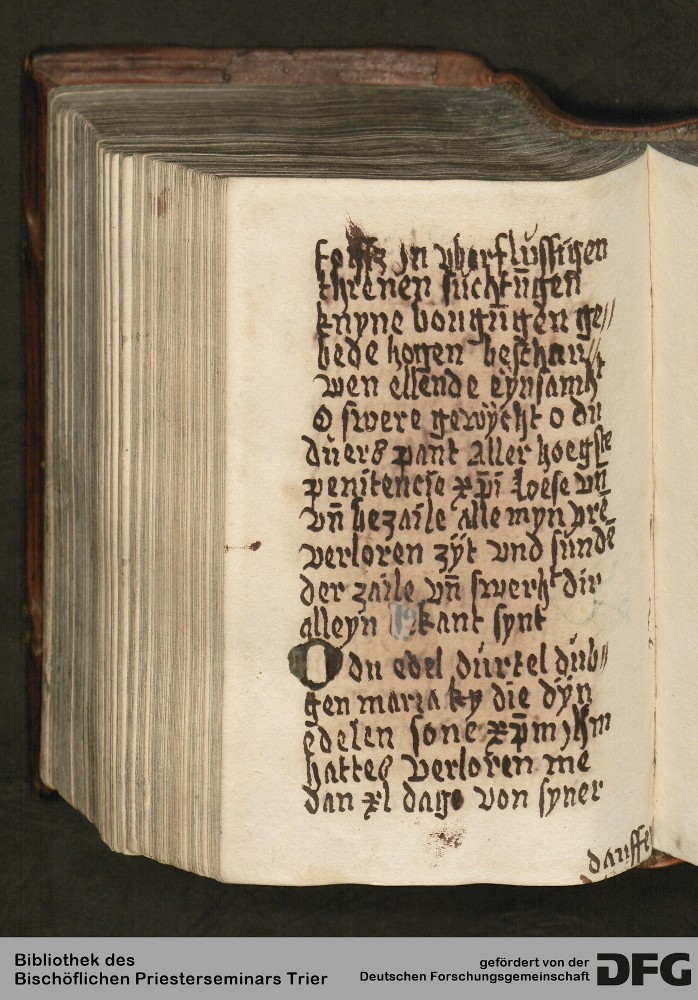 in vberflussigen
threnen suchtūgen
knyne bougūgen ge//
bede hogen beschau//
wen ellende eynsamkt
O swere gewycht o du
duers pant aller hoegste
penitencie xp̄i loese vn̄
vn̄ bezaile alle myn vre
verloren zÿt vnd sunde
der zaile vn̄ swerh dir
alleyn kant synt
O du edel durtel dub//
gen maria ky die dÿn
edelen sone xp̄m jhm
hattes verloren me
dan xl dage von syner
dauffe
Bibliothek des
Bischöflichen Priesterseminars Trier
gefördert von der
Deutschen Forschungsgemeinschaft
DFG